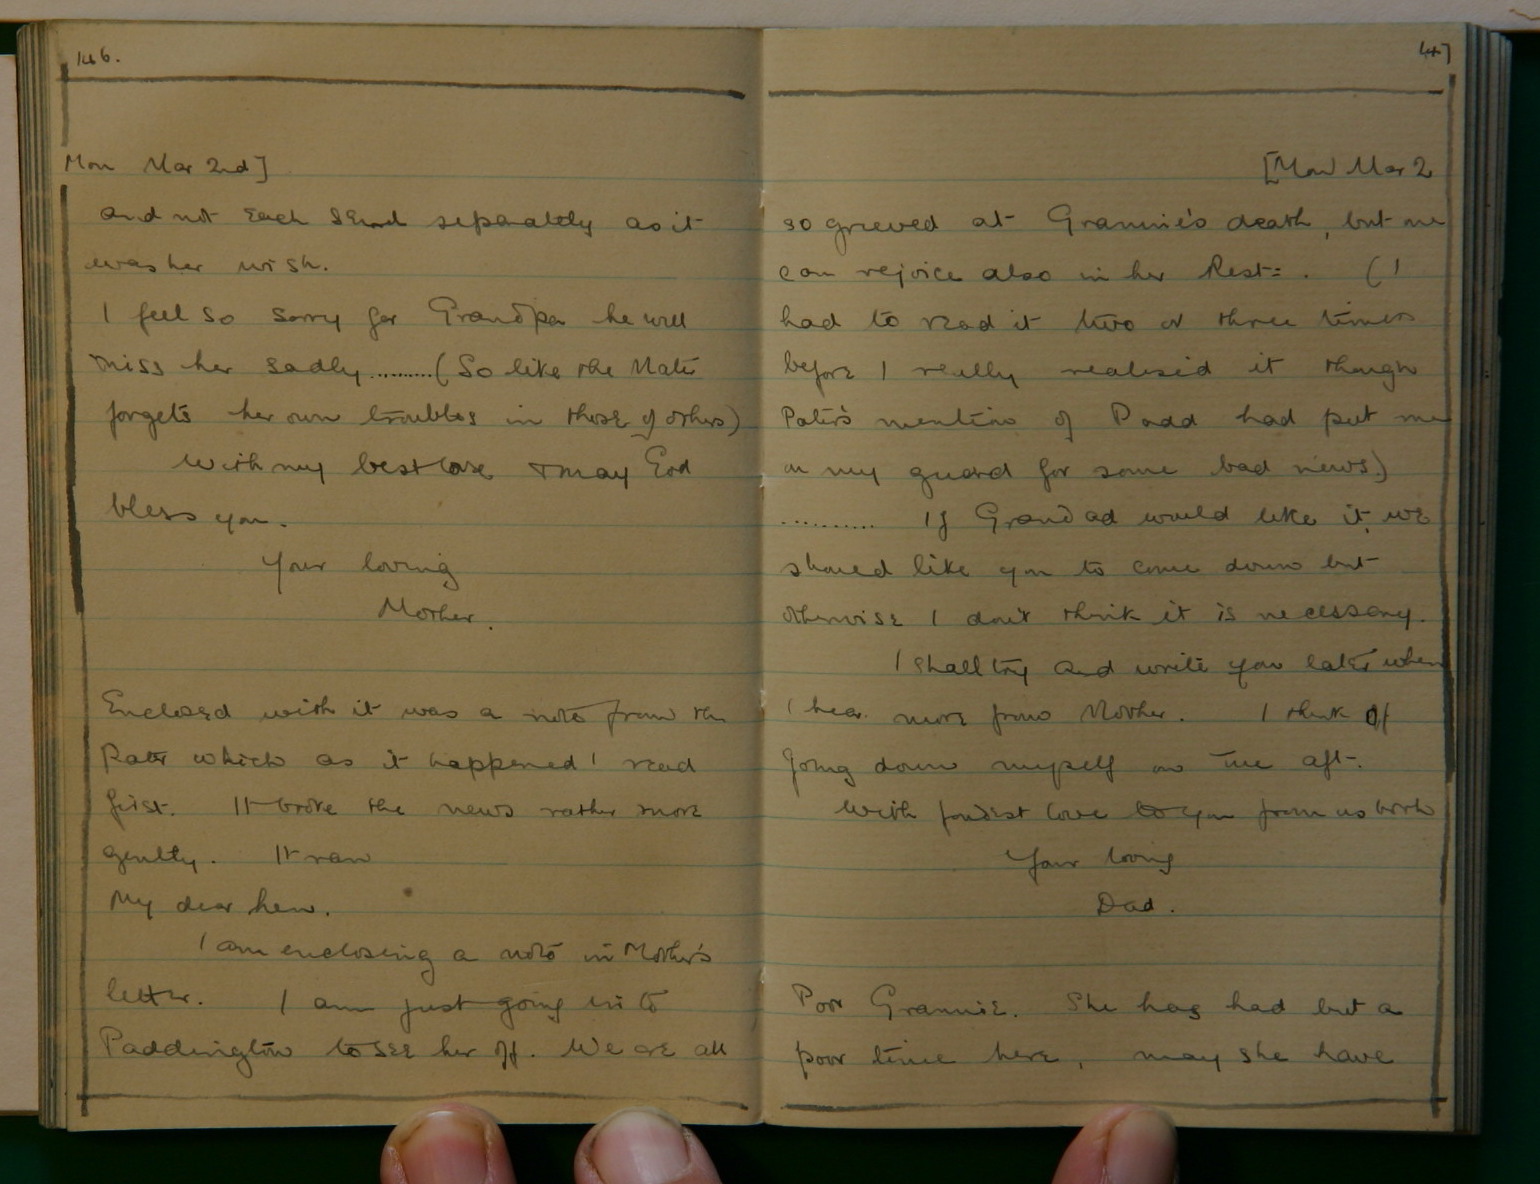 146.
Mon Mar 2nd]
and not each send separately as it
was her wish.
I feel so sorry for Grandpa he will
miss her sadly..........(So like the Mater
forgets her own troubles in those of others)
With my best love & may God
bless you.
Your loving
Mother.
Enclosed with it was a note from the
Pater which as it happened I read
first. It broke the news rather more
gently. It ran
My dear
I am enclosing a note in Mother's
letter. I am just going in to
Paddington to see her off. We are all
147
[Mon Mar 2
so grieved at Grannie's death, but we
can rejoice also in her Rest. (I
had to read it two or three times
before I really realised it though
Pater's mention of Padd had put me
on my guard for some bad news)
.......... If Grandad would like it, we
should like you to come down but
otherwise I don't think it is necessary.
I shall try and write you later when
I hear more from Mother. I think of
going down myself on Tue aft.
With fondest love to you from us both
Your loving
Dad.
Poor Grannie. She has had but a
poor time here, may she have